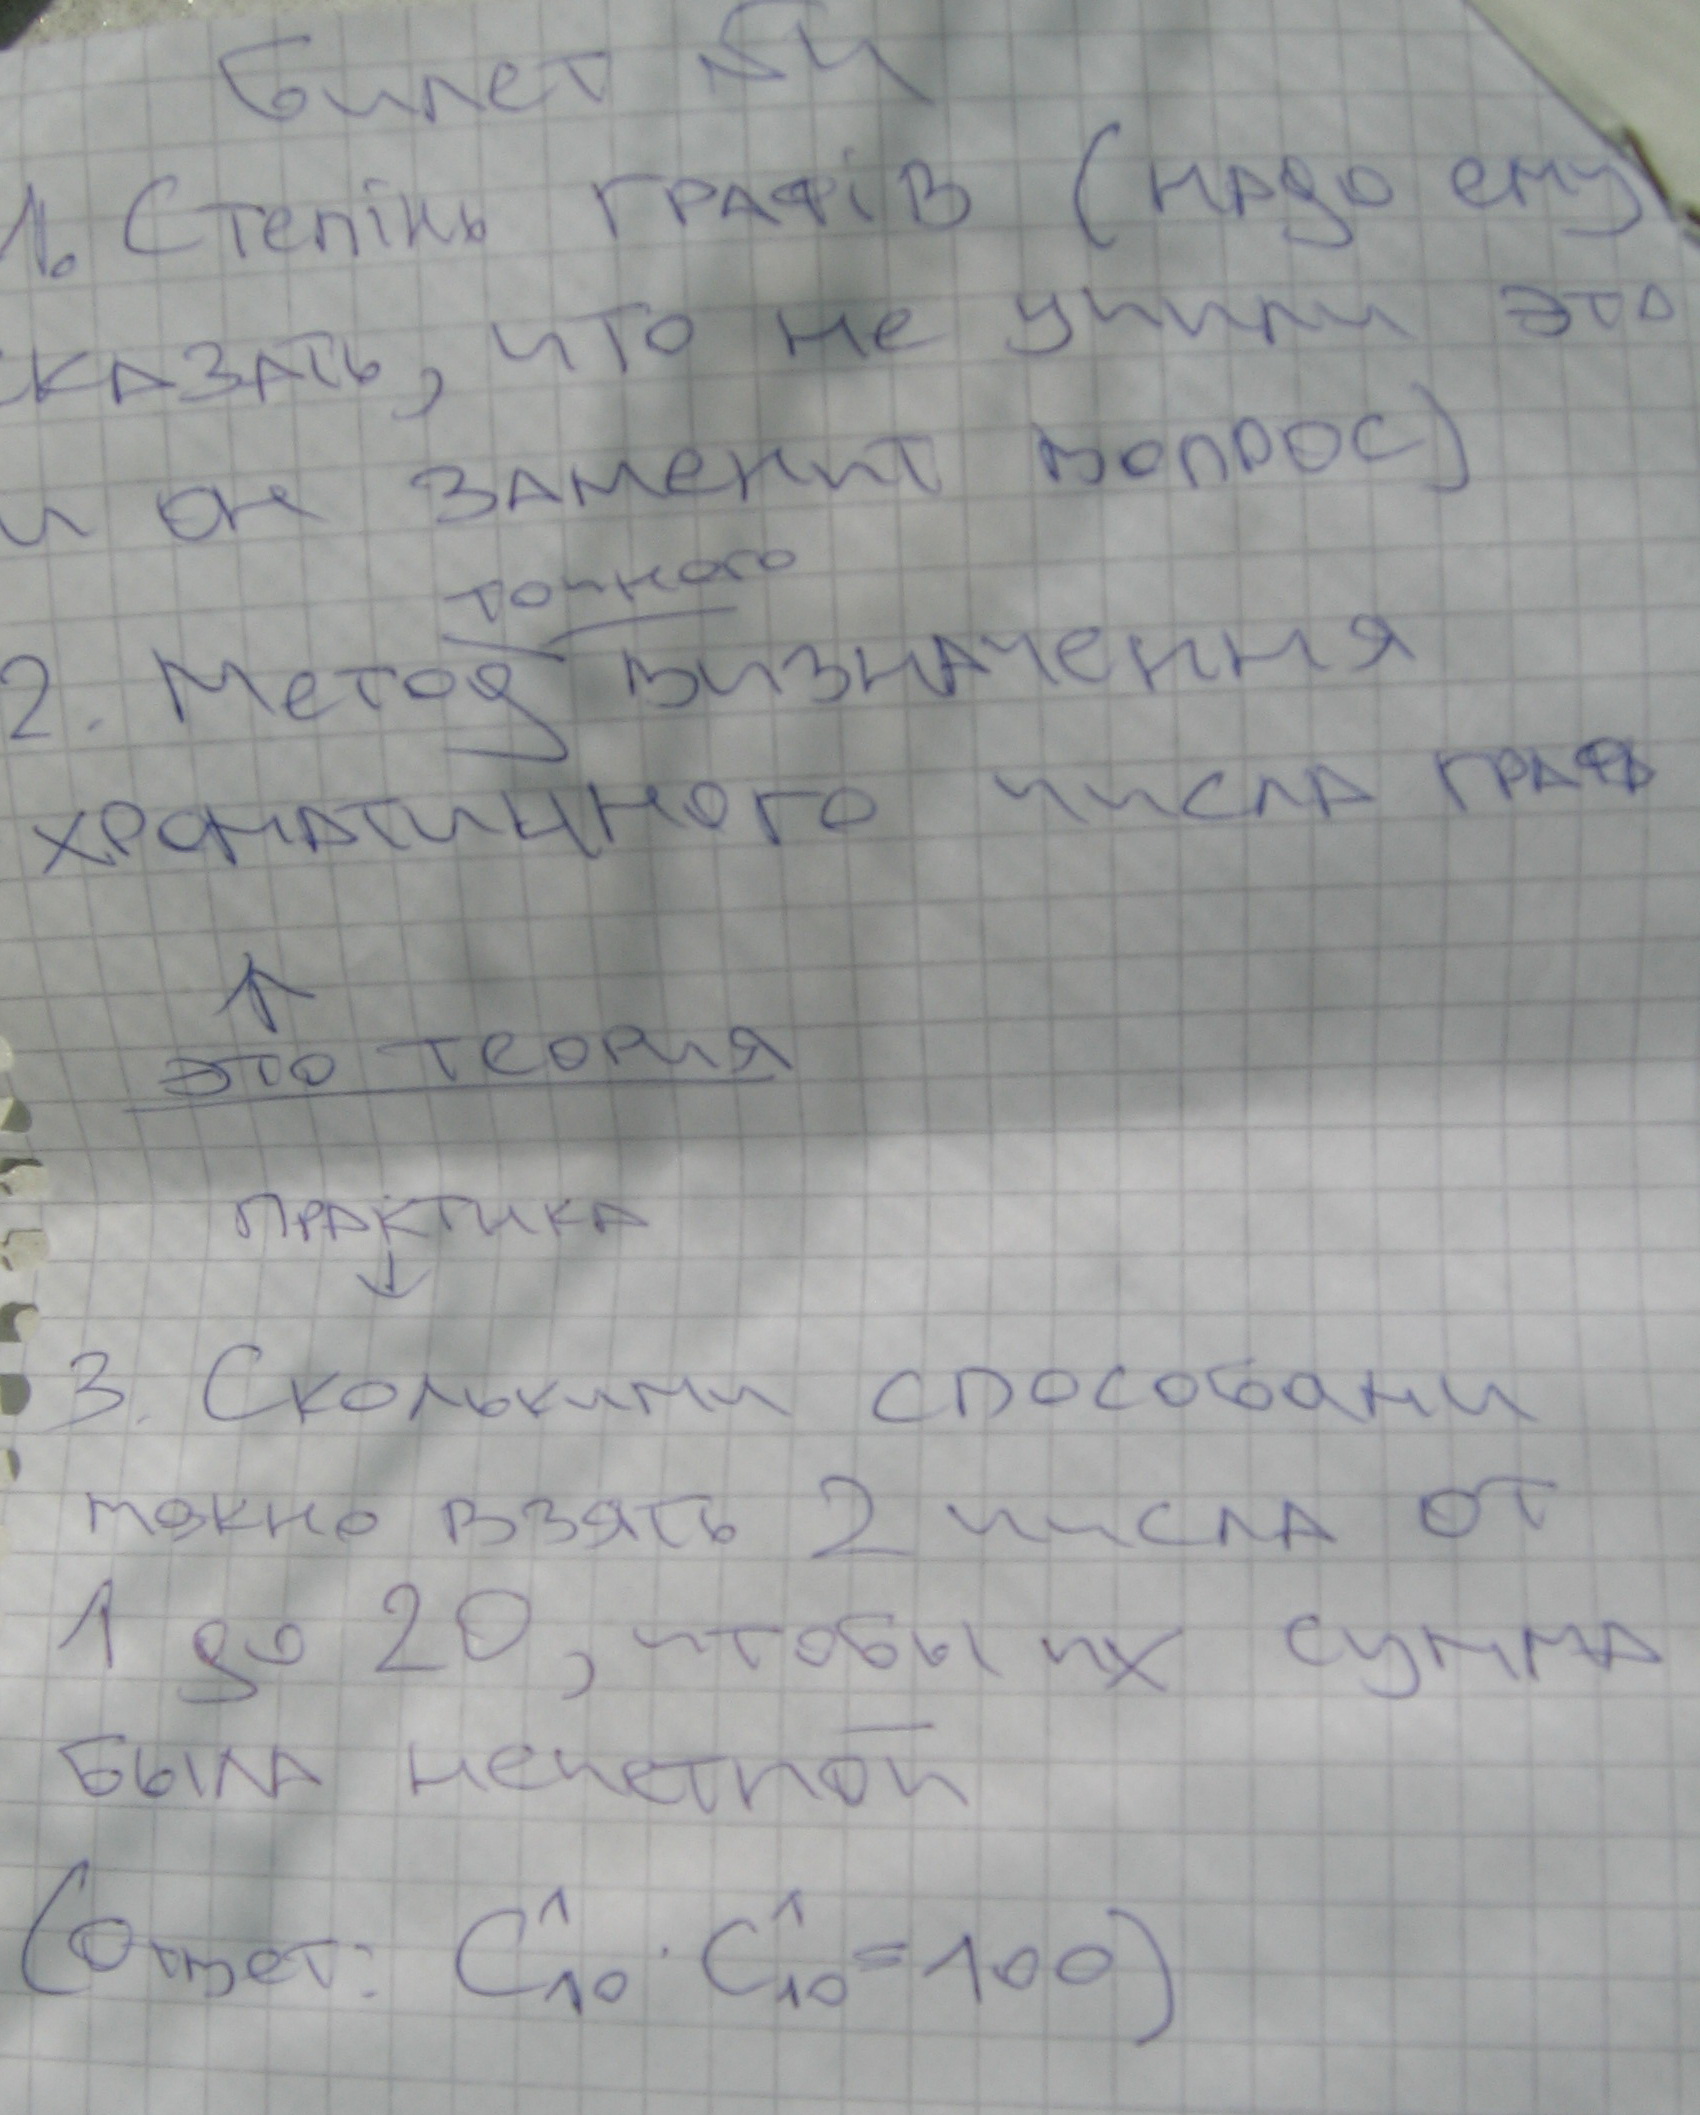 Билет №4
1. Степінь графів (надо ему
сказать, что не учили это
и он заменит вопрос)
точного
2. Метод визначення
хроматичного числа графа
↑
это теория
практика
↓
3. Сколькими способами
можно взять 2 числа от
1 до 20, чтобы их сумма
была нечетной
(Ответ: C¹₁₀ · C¹₁₀ = 100)